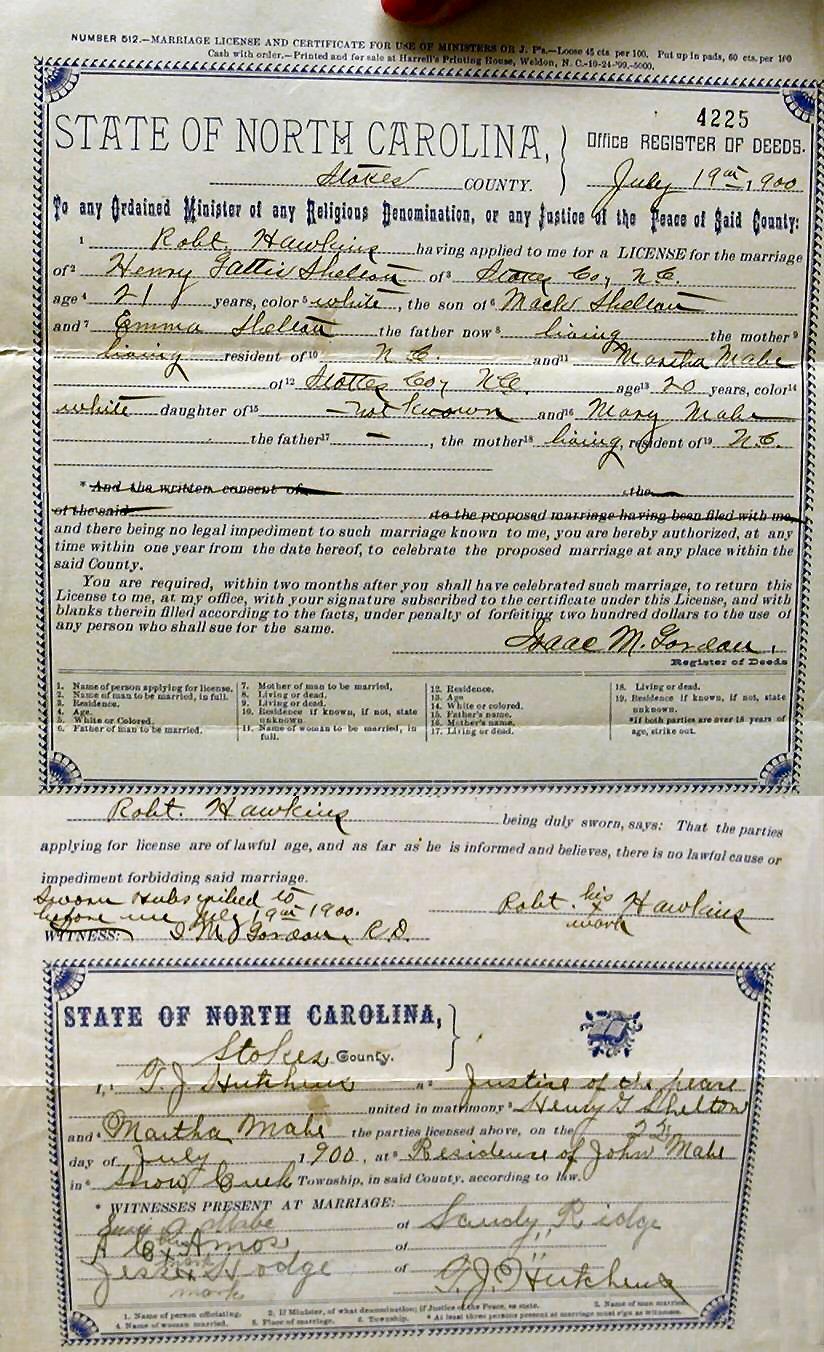 NUMBER 512.—MARRIAGE LICENSE AND CERTIFICATE FOR USE OF MINISTERS OR J. P's.—Loose 45 cts. per 100. Put up in pads, 60 cts. per 100
Cash with order.—Printed and for sale at Harrell's Printing House, Weldon, N. C.-10-24-'99.-5000.
4225
STATE OF NORTH CAROLINA, Office REGISTER OF DEEDS.
Stokes COUNTY. July 19th, 1900
To any Ordained Minister of any Religious Denomination, or any Justice of the Peace of Said County:
1 Robt. Hawkins having applied to me for a LICENSE for the marriage
of 2 Henry Gattis Shelton of 3 Stokes Co, N.C.
age 4 21 years, color 5 white, the son of 6 Mack Shelton
and 7 Emma Shelton the father now 8 living the mother 9
living resident of 10 N.C. and 11 Martha Mabe
of 12 Stokes Co, N.C. age 13 20 years, color 14
white daughter of 15 —not known and 16 Mary Mabe
the father 17 —, the mother 18 living, resident of 19 N.C.
* And the written consent of the
of the said to the proposed marriage having been filed with me
and there being no legal impediment to such marriage known to me, you are hereby authorized, at any
time within one year from the date hereof, to celebrate the proposed marriage at any place within the
said County.
You are required, within two months after you shall have celebrated such marriage, to return this
License to me, at my office, with your signature subscribed to the certificate under this License, and with
blanks therein filled according to the facts, under penalty of forfeiting two hundred dollars to the use of
any person who shall sue for the same.
Isaac M. Gordon,
Register of Deeds
1. Name of person applying for license.
2. Name of man to be married, in full.
3. Residence.
4. Age.
5. White or Colored.
6. Father of man to be married.
7. Mother of man to be married,
8. Living or dead.
9. Living or dead.
10. Residence if known, if not, state
unknown.
11. Name of woman to be married, in
full.
12. Residence.
13. Age
14. White or colored.
15. Father's name.
16. Mother's name.
17. Living or dead.
18. Living or dead.
19. Residence if known, if not, state
unknown.
*If both parties are over 18 years of
age, strike out.
Robt. Hawkins being duly sworn, says: That the parties
applying for license are of lawful age, and as far as he is informed and believes, there is no lawful cause or
impediment forbidding said marriage.
Sworn & subscribed to
before me July 19th 1900.
Robt. his x mark Hawkins
WITNESS: I. M. Gordon, R.D.
STATE OF NORTH CAROLINA,
Stokes County.
I, 1 T. J. Hutchens a 2 Justice of the peace
united in matrimony 3 Henry G Shelton
and 4 Martha Mabe the parties licensed above, on the 22
day of July 1900, at 5 Residence of John Mabe
in 6 Snow Creek Township, in said County, according to law.
* WITNESSES PRESENT AT MARRIAGE:
Mabe of Sandy Ridge
Amos of "
Jesse x Hodge of "
mark
T. J. Hutchens
1. Name of person officiating. 2. If Minister, of what denomination; if Justice of the Peace, so state. 3. Name of man married.
4. Name of woman married. 5. Place of marriage. 6. Township. * At least three persons present at marriage must sign as witness.